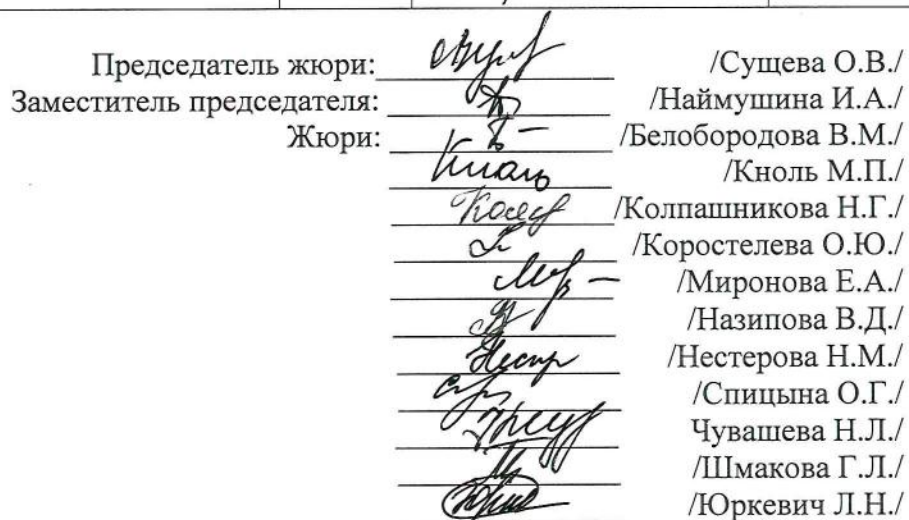 Председатель жюри: /Сущева О.В./
Заместитель председателя: /Наймушина И.А./
Жюри: /Белобородова В.М./
/Кноль М.П./
/Колпашникова Н.Г./
/Коростелева О.Ю./
/Миронова Е.А./
/Назипова В.Д./
/Нестерова Н.М./
/Спицына О.Г./
Чувашева Н.Л./
/Шмакова Г.Л./
/Юркевич Л.Н./